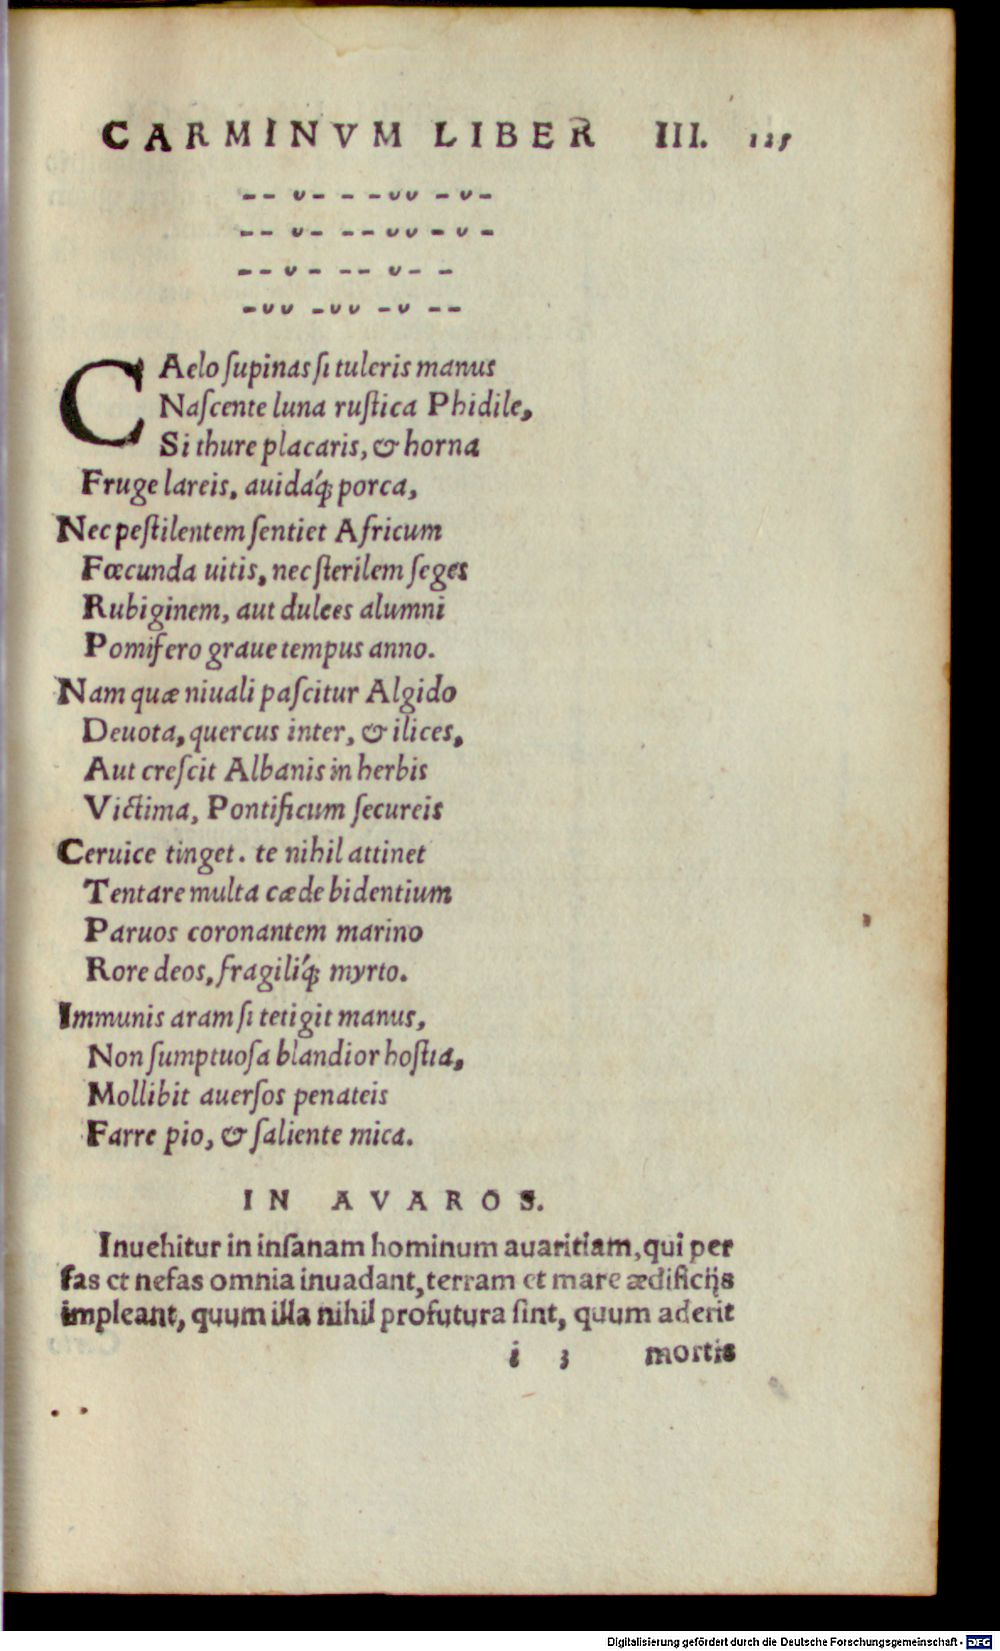 CARMINVM LIBER III. 125
-- ᴗ- - -ᴗᴗ -ᴗ-
-- ᴗ- --ᴗᴗ -ᴗ-
--ᴗ- -- ᴗ- -
-ᴗᴗ -ᴗᴗ -ᴗ --
CAelo ſupinas ſi tuleris manus
Naſcente luna ruſtica Phidile,
Si thure placaris, & horna
Fruge lareis, auidaq́; porca,
Nec peſtilentem ſentiet Africum
Fœcunda uitis, nec ſterilem ſeges
Rubiginem, aut dulces alumni
Pomifero graue tempus anno.
Nam quæ niuali paſcitur Algido
Deuota, quercus inter, & ilices,
Aut creſcit Albanis in herbis
Victima, Pontificum ſecureis
Ceruice tinget. te nihil attinet
Tentare multa cæde bidentium
Paruos coronantem marino
Rore deos, fragiliq́; myrto.
Immunis aram ſi tetigit manus,
Non ſumptuoſa blandior hoſtia,
Mollibit auerſos penateis
Farre pio, & ſaliente mica.
IN AVAROS.
Inuehitur in inſanam hominum auaritiam, qui per
fas et nefas omnia inuadant, terram et mare ædificijs
impleant, quum illa nihil profutura ſint, quum aderit
i 3 mortis
Digitalisierung gefördert durch die Deutsche Forschungsgemeinschaft - DFG